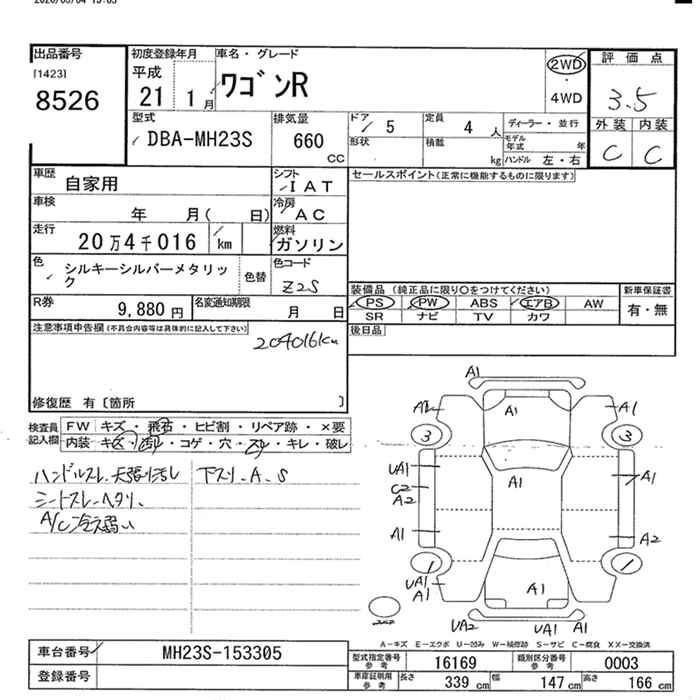 出品番号
[1423]
8526
初度登録年月
平成
21 1 月
車名・グレード
ワゴンR
2WD
・
4WD
評価点
3.5
外装 内装
C C
型式
DBA-MH23S
排気量
660
CC
ドア 5
定員 4 人
ディーラー・並行
形状
積載 kg
モデル年式 年
ハンドル 左・右
車歴
自家用
シフト
IAT
セールスポイント(正常に機能するものに限ります)
車検
年 月( 日)
冷房
AC
走行
20万4千016 km
燃料
ガソリン
色
シルキーシルバーメタリック
色替
色コード
Z2S
装備品 (純正品に限り○をつけてください)
新車保証書
PS PW ABS エアB AW
有・無
SR ナビ TV カワ
R券
9,880 円
名変通知期限
月 日
後日品
注意事項申告欄(不具合内容等は具体的に記入して下さい)
204016km
修復歴 有〔箇所 〕
検査員記入欄
FW キズ・飛石・ヒビ割・リペア跡・×要
内装 キズ・汚れ・コゲ・穴・スレ・キレ・破レ
ハンドルスレ、天張り汚し
下スリ、A、S
シートスレ・ヘタリ、
A/C冷え弱い
A1
A1
A2
A1
3
3
UA1
C2
A2
A1
A1
A1
A2
1
1
UA1
A1
A1
UA2 UA1 A1
A-キズ E-エクボ U-凹み W-補修跡 S-サビ C-腐食 XX-交換済
車台番号
MH23S-153305
登録番号
型式指定番号 参考
16169
類別区分番号 参考
0003
車庫証明用 参考
長さ 339 cm
幅 147 cm
高さ 166 cm